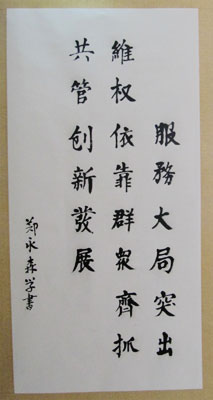 服務大局突出
維权依靠群眾齊抓
共管创新發展
郑永森学書